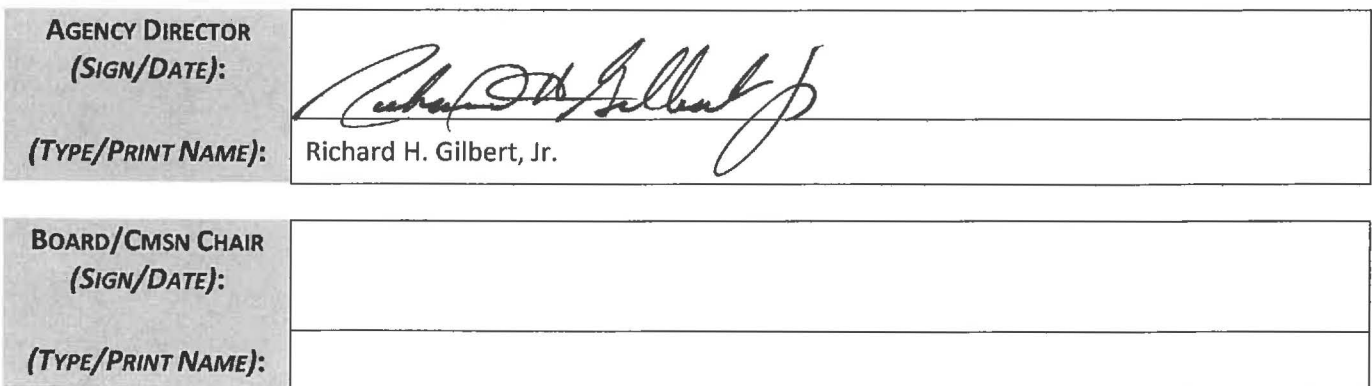 AGENCY DIRECTOR
(SIGN/DATE):
Richard H Gilbert Jr
(TYPE/PRINT NAME): Richard H. Gilbert, Jr.
BOARD/CMSN CHAIR
(SIGN/DATE):
(TYPE/PRINT NAME):